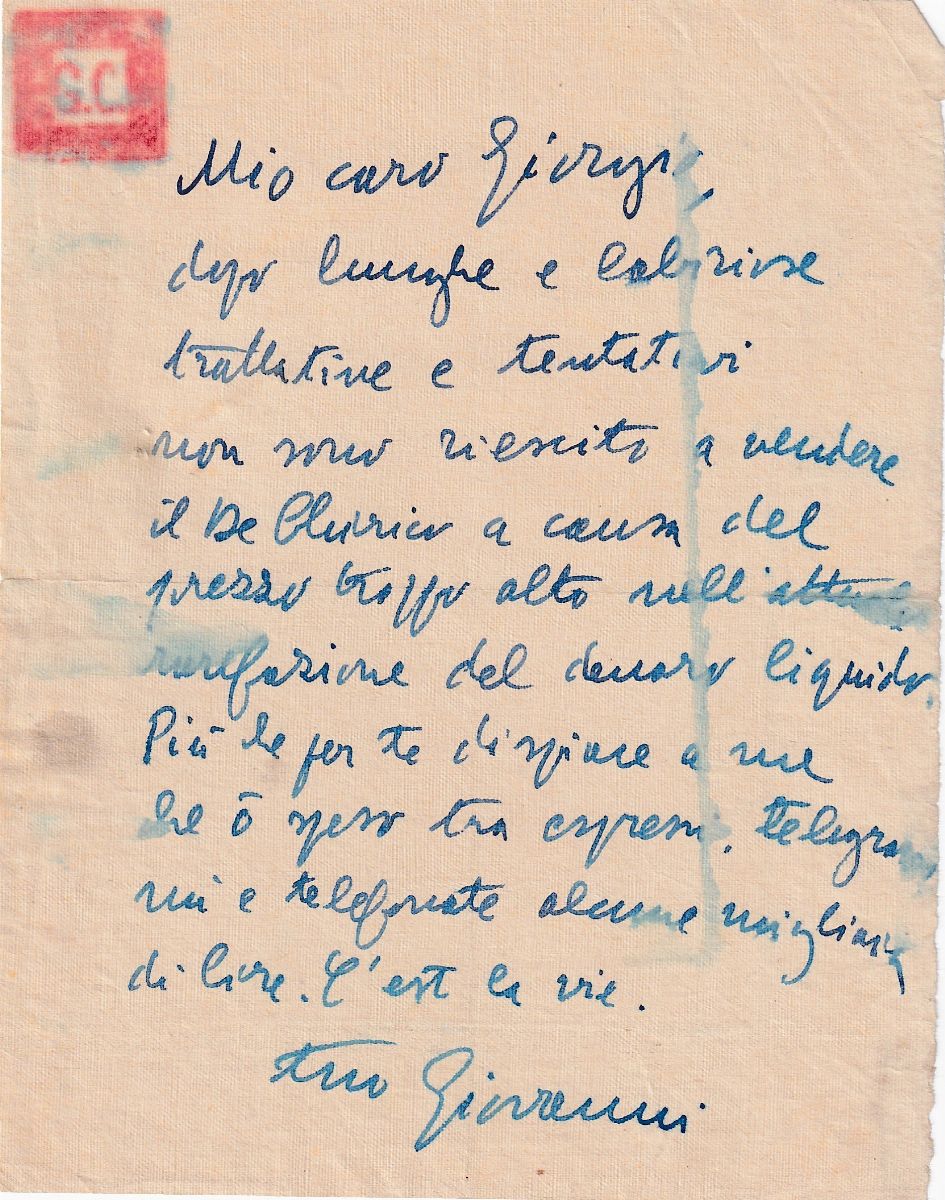 G.C.
Mio caro Giorgio,
dopo lunghe e laboriose
trattative e tentativi
non sono riescito a vendere
il De Chirico a causa del
prezzo troppo alto nell'attuale
rarefazione del denaro liquido.
Più che per te dispiace a me
che ò speso tra espressi, telegram
mi e telefonate alcune migliaia
di lire. C'est la vie.
tuo Giovanni